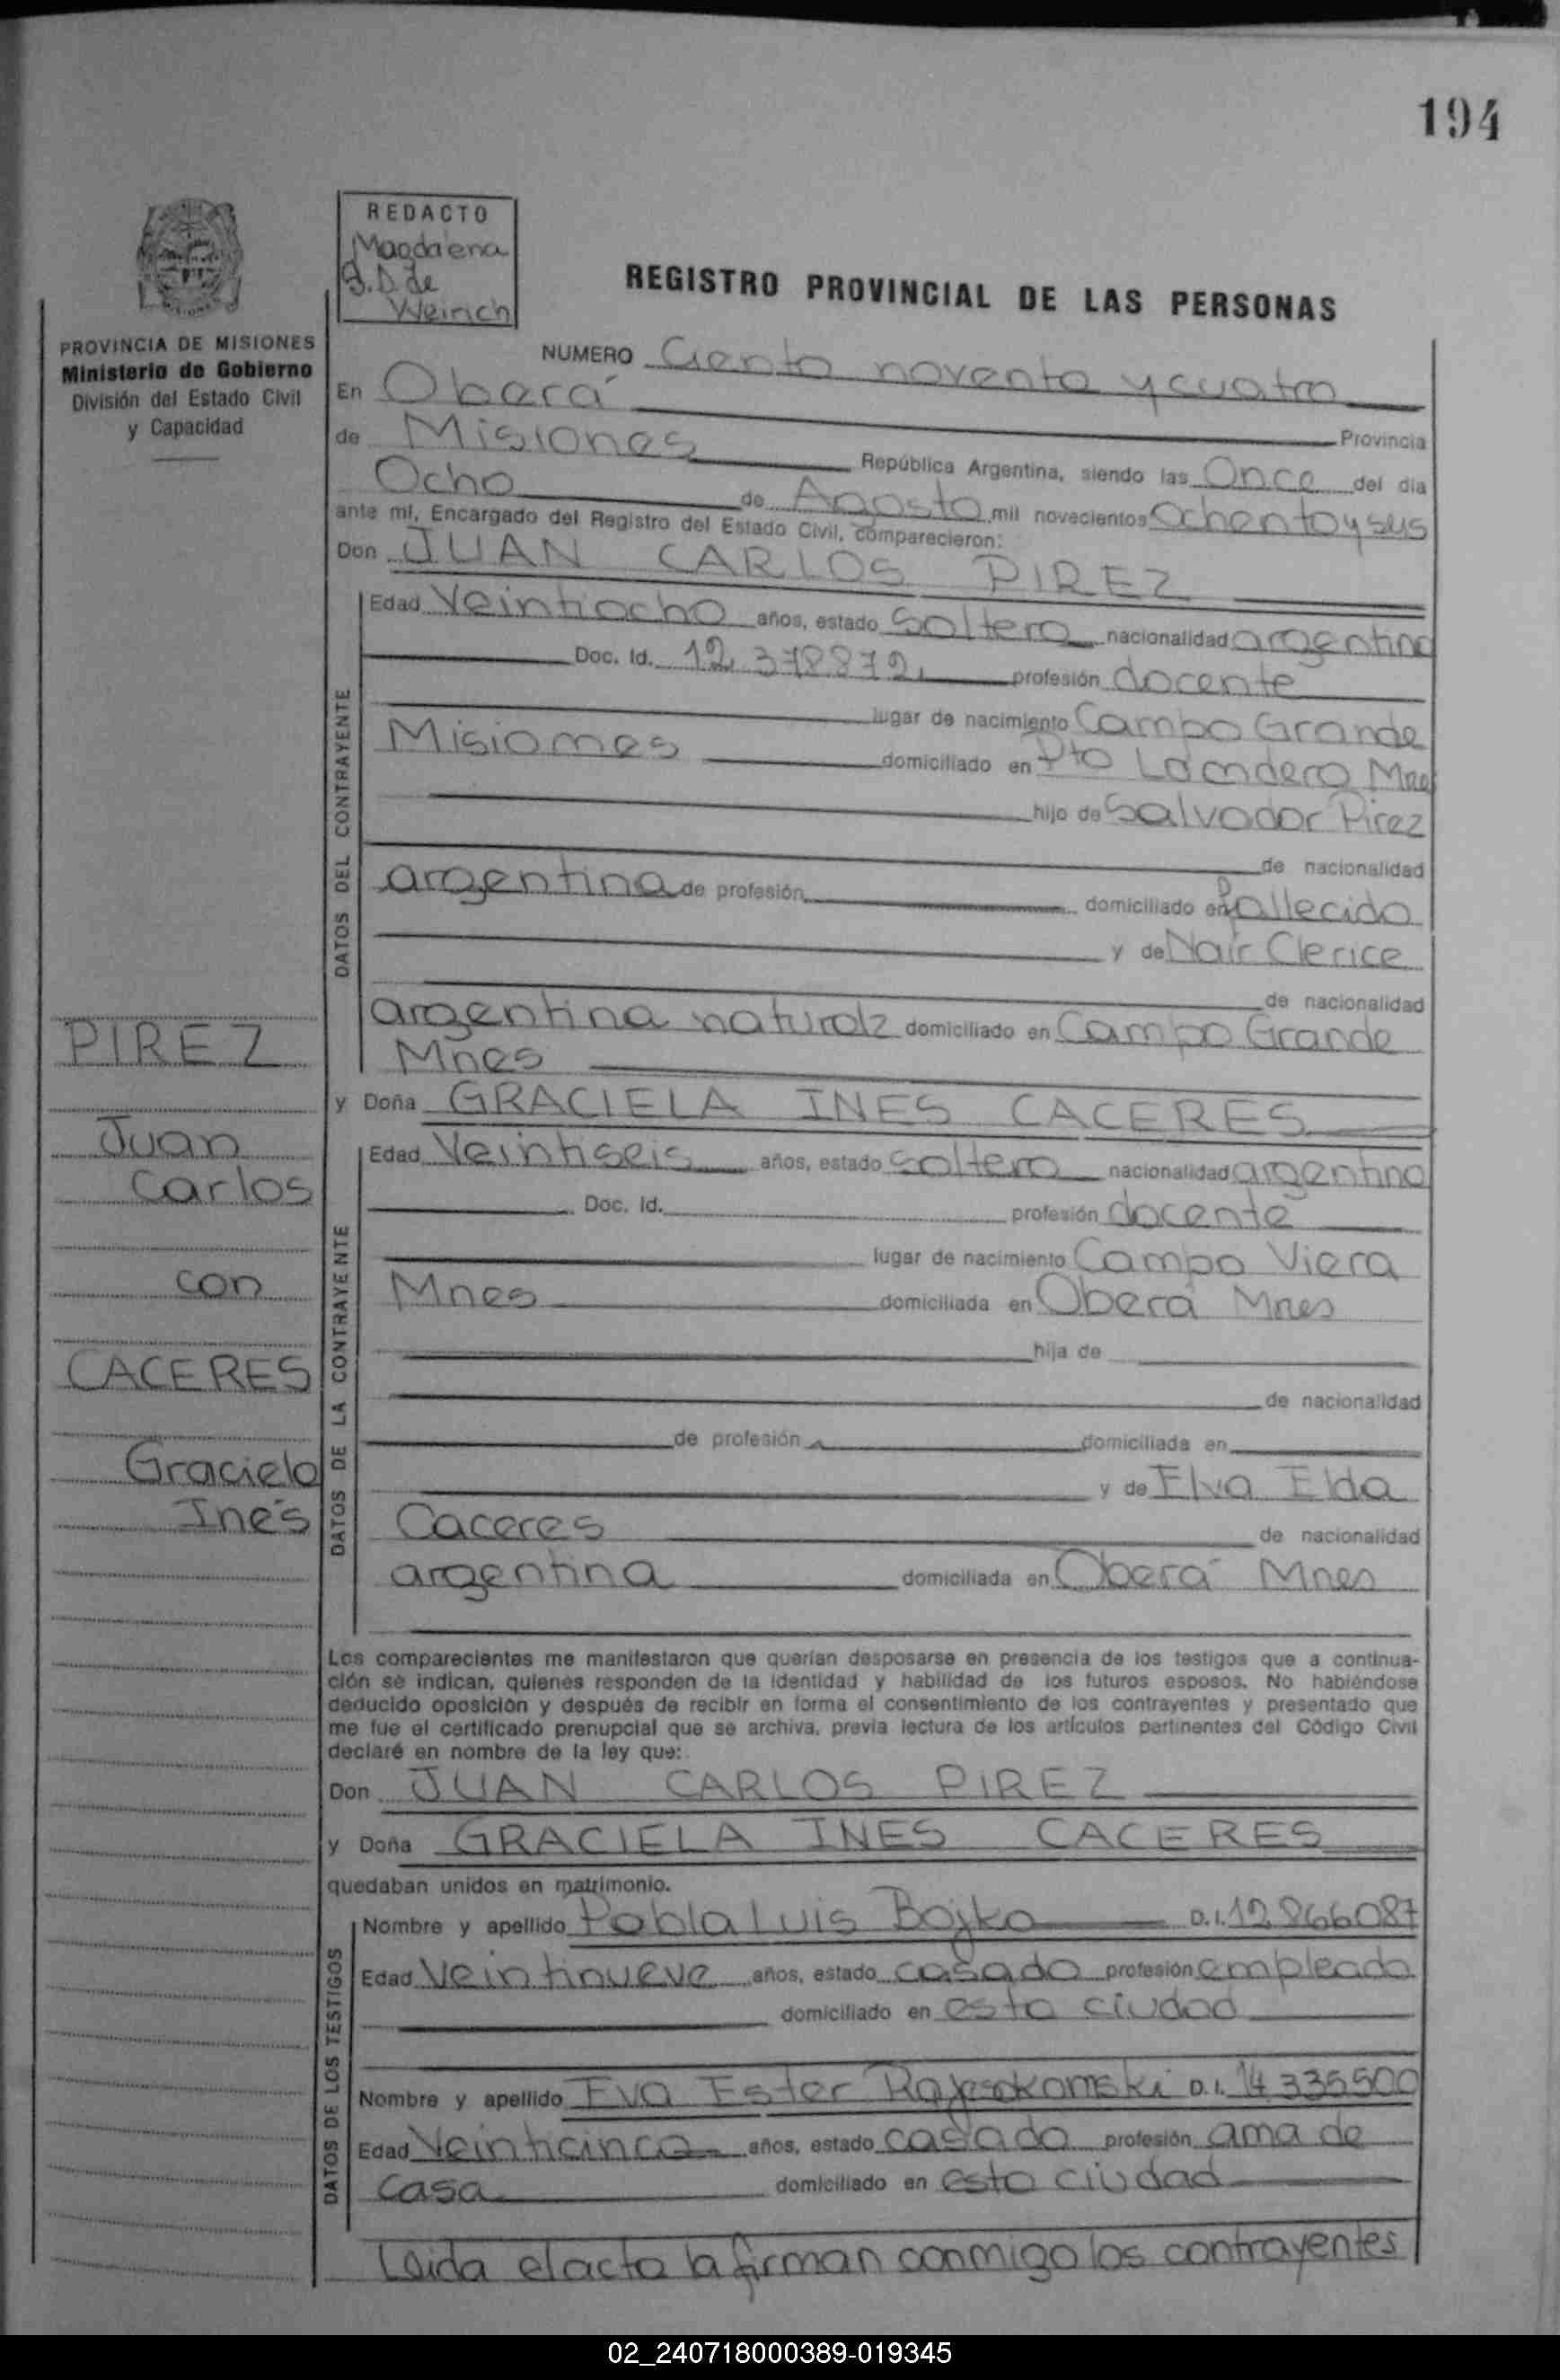 194
REDACTO
Magdalena
G. D. de
Weirich
PROVINCIA DE MISIONES
Ministerio de Gobierno
División del Estado Civil
y Capacidad
REGISTRO PROVINCIAL DE LAS PERSONAS
NUMERO Ciento noventa y cuatro
En Oberá
Provincia
de Misiones República Argentina, siendo las Once del día
Ocho de Agosto mil novecientos ochenta y seis
ante mí, Encargado del Registro del Estado Civil, comparecieron:
Don JUAN CARLOS PIREZ
DATOS DEL CONTRAYENTE
Edad Veintiocho años, estado soltero nacionalidad argentina
Doc. Id. 12.378872 profesión docente
lugar de nacimiento Campo Grande
Misiones domiciliado en Pto Mnes
hijo de Salvador Pirez
de nacionalidad
argentina de profesión domiciliado en fallecido
y de Nair Clerice
de nacionalidad
argentina domiciliado en Campo Grande
Mnes
y Doña GRACIELA INES CACERES
DATOS DE LA CONTRAYENTE
Edad Veintiseis años, estado soltera nacionalidad argentina
Doc. Id. profesión docente
lugar de nacimiento Campo Viera
Mnes domiciliada en Oberá Mnes
hija de
de nacionalidad
de profesión domiciliada en
y de Elva Elda
Caceres de nacionalidad
argentina domiciliada en Oberá Mnes
PIREZ
Juan
Carlos
con
CACERES
Graciela
Inés
Los comparecientes me manifestaron que querían desposarse en presencia de los testigos que a continua-
ción se indican, quienes responden de la identidad y habilidad de los futuros esposos. No habiéndose
deducido oposición y después de recibir en forma el consentimiento de los contrayentes y presentado que
me fue el certificado prenupcial que se archiva, previa lectura de los artículos pertinentes del Código Civil
declaré en nombre de la ley que:
Don JUAN CARLOS PIREZ
y Doña GRACIELA INES CACERES
quedaban unidos en matrimonio.
DATOS DE LOS TESTIGOS
Nombre y apellido Pabla Luis Bojko D.I. 12866087
Edad Veintinueve años, estado casado profesión empleado
domiciliado en esta ciudad
Nombre y apellido Eva Ester D.I. 14335500
Edad Veinticinco años, estado casada profesión ama de
casa domiciliado en esta ciudad
Leida el acta la firman conmigo los contrayentes
02_240718000389-019345